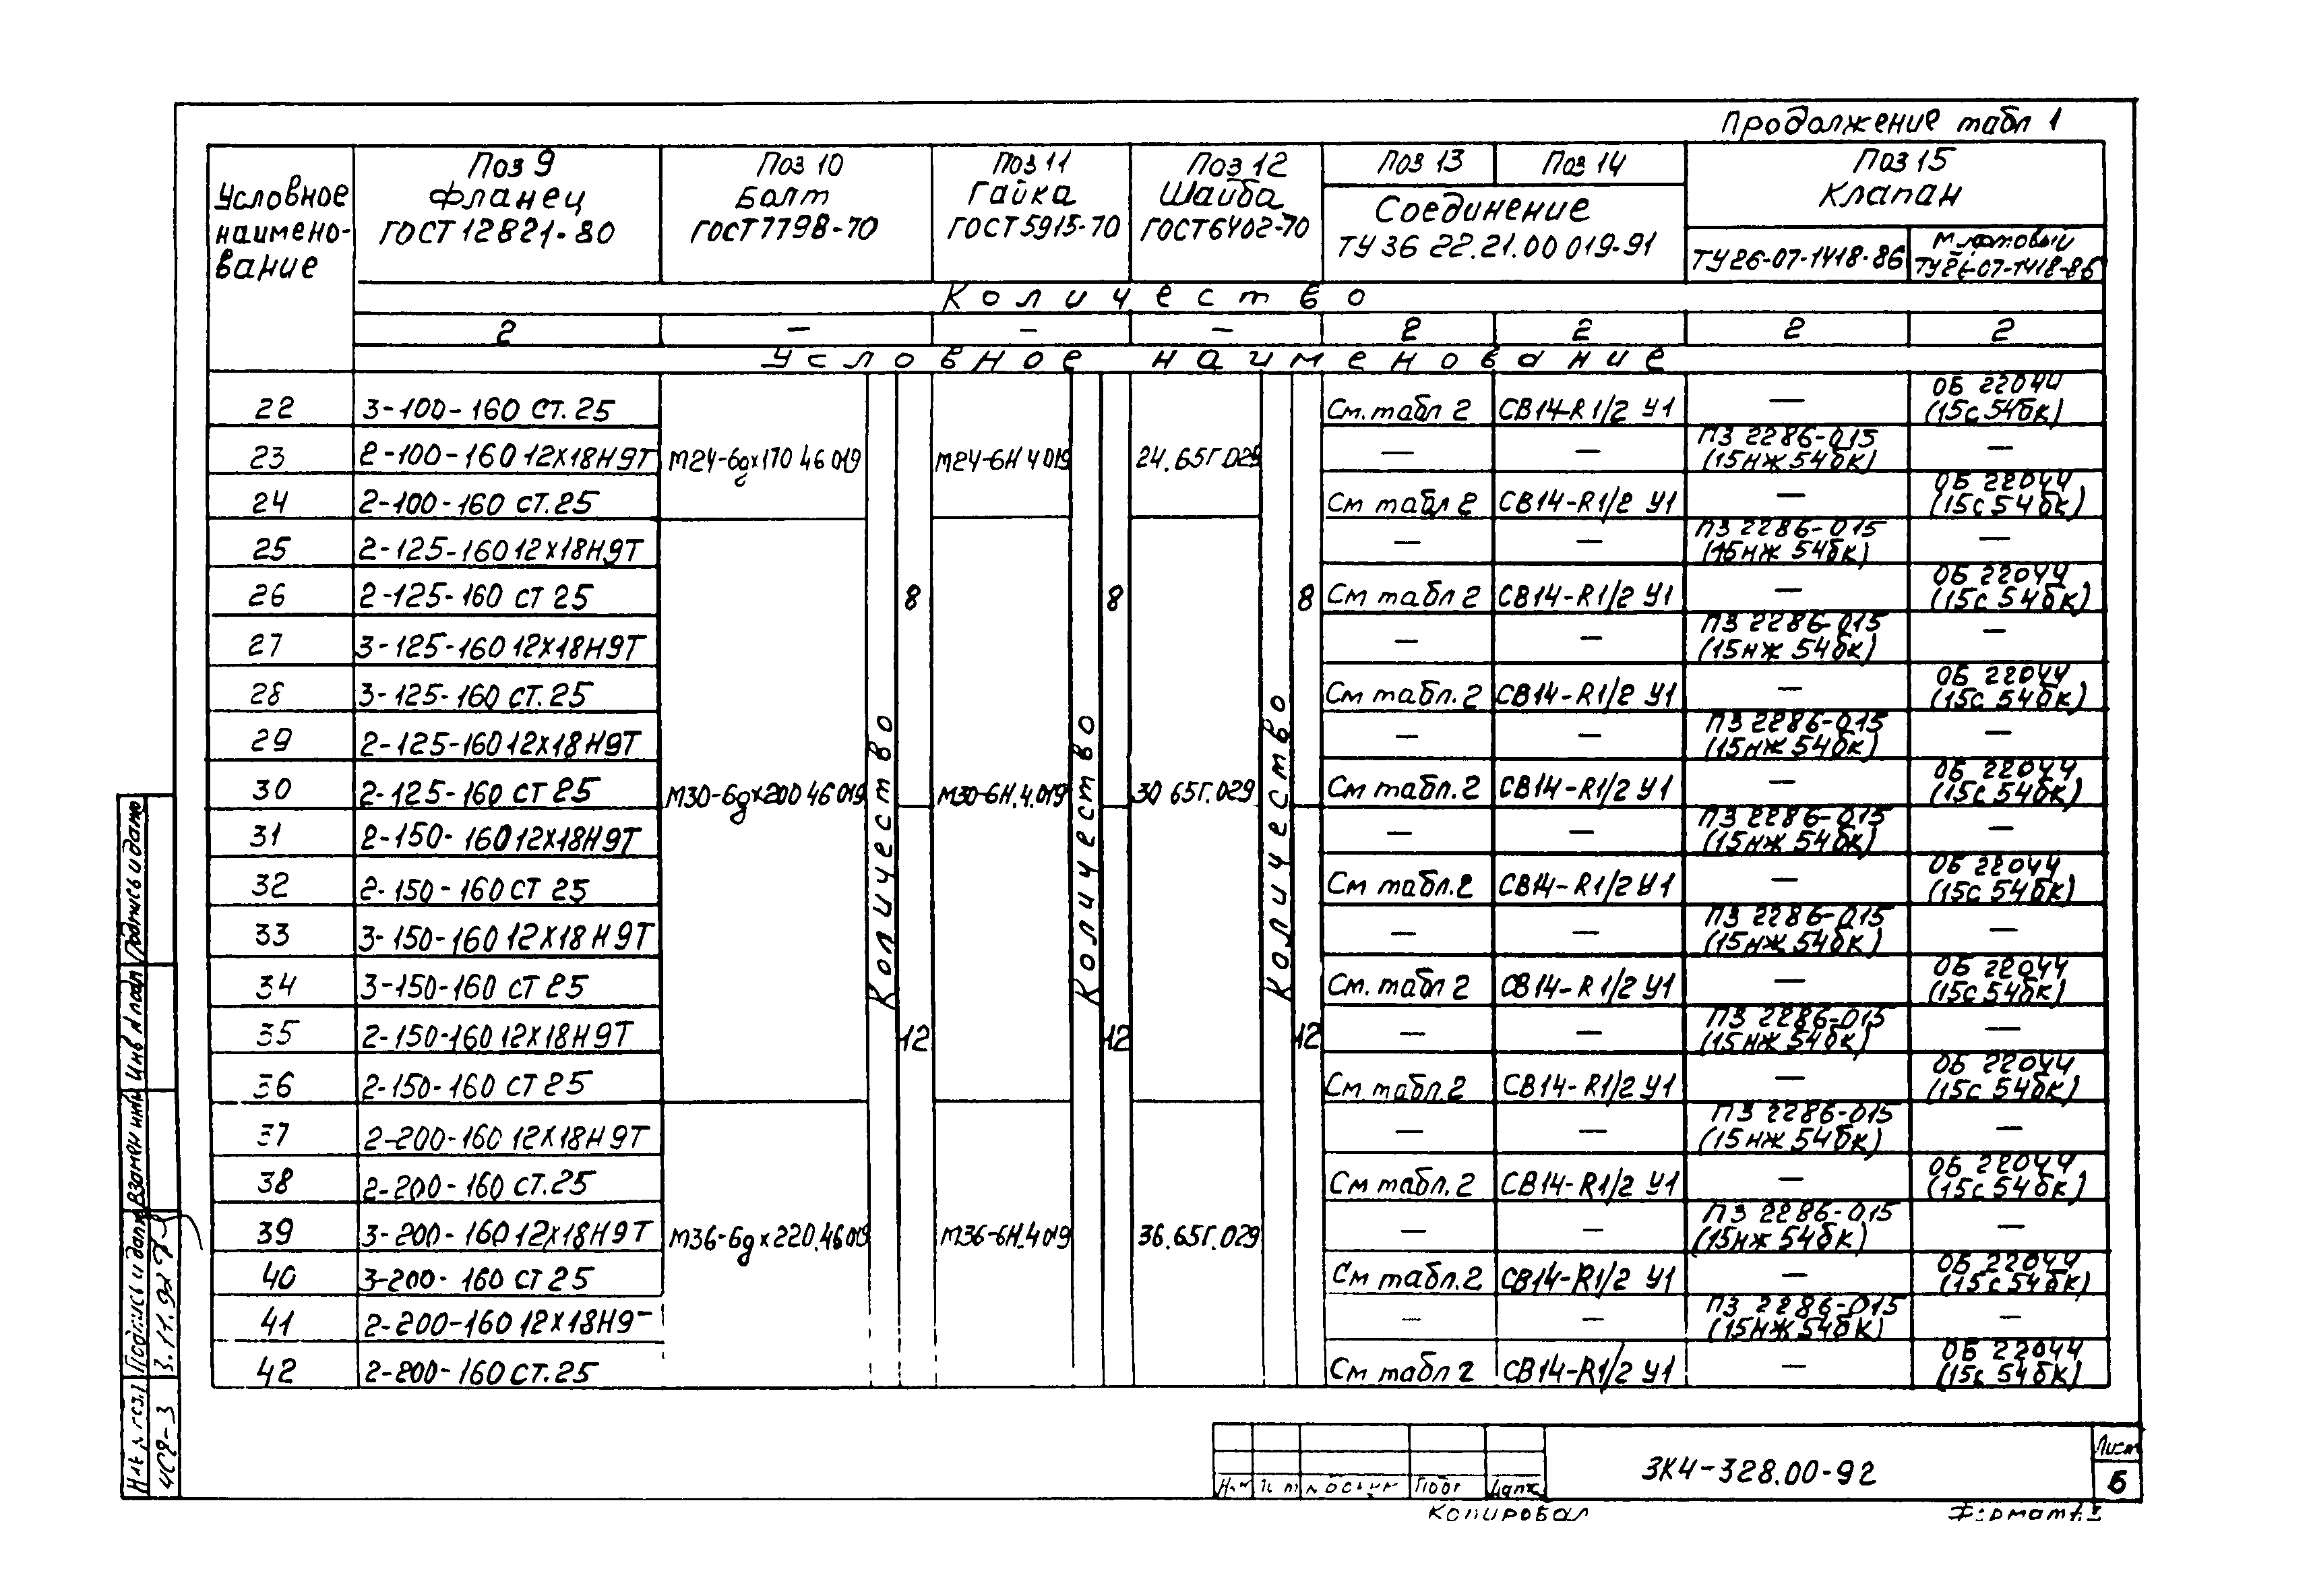 Продолжение табл 1
Условное
наимено-
вание
Поз 9
Фланец
ГОСТ 12821-80
Поз 10
Болт
ГОСТ 7798-70
Поз 11
Гайка
ГОСТ 5915-70
Поз 12
Шайба
ГОСТ 6402-70
Поз 13
Поз 14
Соединение
ТУ 36 22.21.00 019-91
Поз 15
Клапан
ТУ 26-07-1418-86
ТУ 26-07-1418-86
Количество
2 – – – 2 2 2 2
Условное наименование
22 3-100-160 ст.25 См. табл 2 СВ14-R1/2 У1 — ОБ 22044
(15с 54бк)
23 2-100-160 12х18Н9Т М24-6gх170 46 019 М24-6Н 4 019 24.65Г.029 — — ПЗ 2286-015 —
(15нж 54бк)
24 2-100-160 ст.25 См табл 2 СВ14-R1/2 У1 — ОБ 22044
(15с 54бк)
25 2-125-160 12х18Н9Т — — ПЗ 2286-015 —
(15нж 54бк)
26 2-125-160 ст 25 8 8 8 См табл 2 СВ14-R1/2 У1 — ОБ 22044
(15с 54бк)
27 3-125-160 12х18Н9Т — — ПЗ 2286-015 —
(15нж 54бк)
28 3-125-160 ст.25 См табл.2 СВ14-R1/2 У1 — ОБ 22044
(15с 54бк)
29 2-125-160 12х18Н9Т — — ПЗ 2286-015 —
(15нж 54бк)
30 2-125-160 ст 25 М30-6gх200 46 019 М30-6Н.4.019 30 65Г.029 См табл.2 СВ14-R1/2 У1 — ОБ 22044
(15с 54бк)
Количество
Количество
Количество
31 2-150-160 12х18Н9Т — — ПЗ 2286-015 —
(15нж 54бк)
32 2-150-160 ст 25 См табл.2 СВ14-R1/2 У1 — ОБ 22044
(15с 54бк)
33 3-150-160 12х18Н9Т — — ПЗ 2286-015 —
(15нж 54бк)
34 3-150-160 ст 25 См. табл 2 СВ14-R1/2 У1 — ОБ 22044
(15с 54бк)
35 2-150-160 12х18Н9Т 12 12 12 — — ПЗ 2286-015 —
(15нж 54бк)
36 2-150-160 ст 25 См табл.2 СВ14-R1/2 У1 — ОБ 22044
(15с 54бк)
37 2-200-160 12х18Н9Т — — ПЗ 2286-015 —
(15нж 54бк)
38 2-200-160 ст.25 См табл.2 СВ14-R1/2 У1 — ОБ 22044
(15с 54бк)
39 3-200-160 12х18Н9Т М36-6gх220.46 019 М36-6Н.4 019 36.65Г.029 — — ПЗ 2286-015 —
(15нж 54бк)
40 3-200-160 ст 25 См табл.2 СВ14-R1/2 У1 — ОБ 22044
(15с 54бк)
41 2-200-160 12х18Н9 — — ПЗ 2286-015 —
(15нж 54бк)
42 2-200-160 ст.25 См табл 2 СВ14-R1/2 У1 — ОБ 22044
(15с 54бк)
Подпись и дата
Инв N подл
Взамен инв
Подпись и дата
3.11.92
4С8-3
ЗК4-328.00-92
Лист
6
Копировал
Формат